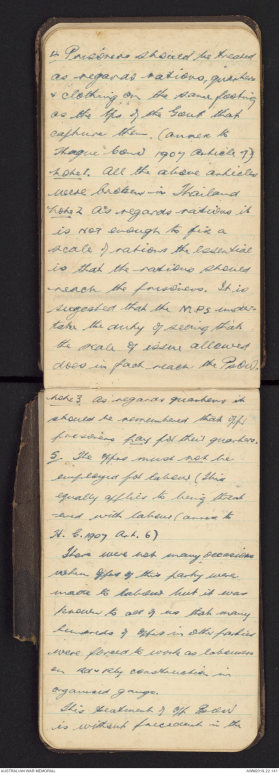 4. Prisoners should be treated
as regards rations, quarters
& clothing on the same footing
as the tps of the Govt that
capture them. (annex to
Hague Conv 1907 Article 7)
Note 1. All the above articles
were broken in Thailand
Note 2 As regards rations it
is not enough to fix a
scale of rations the essential
is that the rations should
reach the prisoners. It is
suggested that the M.P.S under-
take the duty of seeing that
the scale of issue allowed
does in fact reach the PsOW.
Note 3 As regards quarters it
should be remembered that offr
prisoners pay for their quarters.
5. The offrs must not be
employed for labour (This
equally applies to being
with labour (annex to
H. C. 1907 Art. 6)
There were not many occasions
when offrs of this party were
made to labour but it was
known to all of us that many
hundreds of offrs in other parties
were forced to work as labourers
on railway construction in
organised gangs.
This treatment of off PsOW
is without precedent in the
AUSTRALIAN WAR MEMORIAL